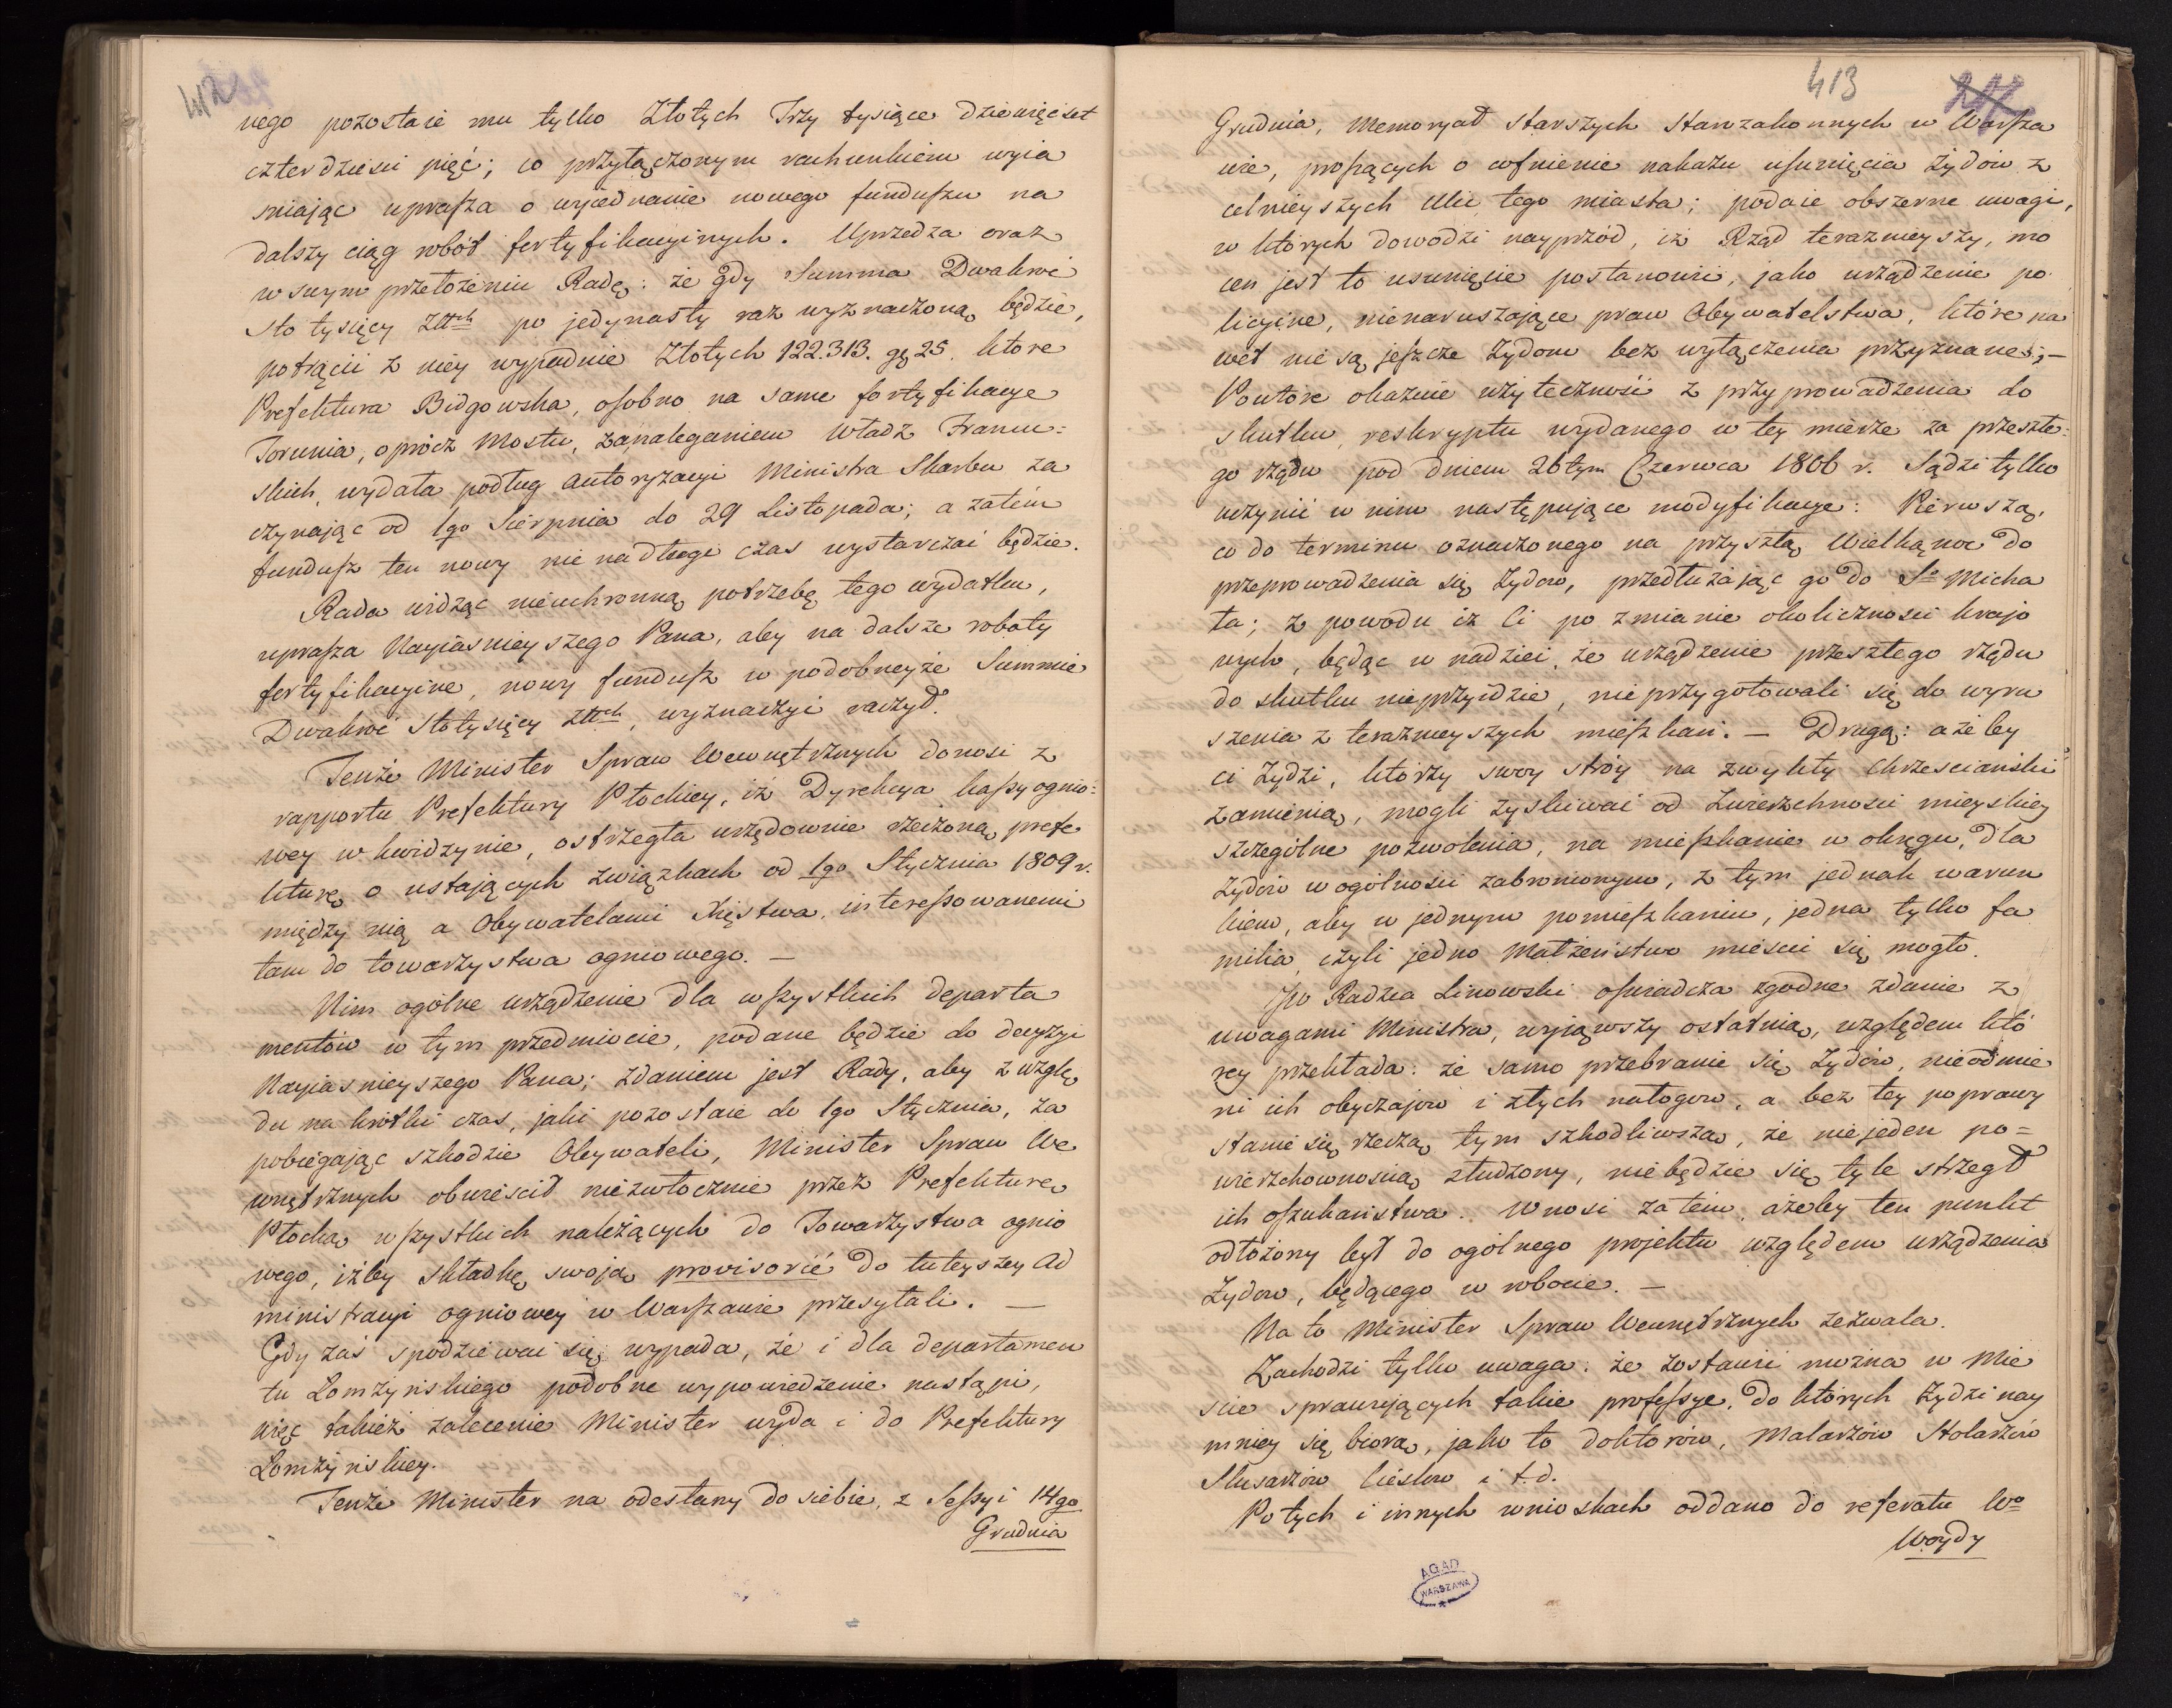 412
nego pozostaie mu tylko Złotych Trzy tysiące dziewięćset
czterdzieści pięć; co przyłączonym rachunkiem wyia
sniając uprasza o wyiednanie nowego funduszu na
dalszy ciąg robót fortyfikacyinych. Uprzedza oraz
w swym przełożeniu Radę: że gdy Summa Dwakroć
Sto tysięcy złtch po jedynasty raz wyznaczoną będzie,
potrącić z niey wypadnie Złotych 122.313. gr 25. które
Prefektura Bidgowska, osobno na same fortyfikacye
Torunia, oprócz Mostu, za naleganiem Władz Francu=
skich, wydała podług autoryzacyi Ministra Skarbu za
czynając od 1go Sierpnia do 29 Listopada; a zatém
fundusz ten nowy nie na długi czas wystarczać będzie.
Rada widząc nieuchronną potrzebę tego wydatku,
uprasza Nayiasnieyszego Pana, aby na dalsze roboty
fortyfikacyine, nowy fundusz w podobneyże Summie
Dwakroć Stotysięcy złtch, wyznaczyć raczył.
Tenże Minister Spraw Wewnętrznych donosi z
rapportu Prefektury Płockiey, iż Dyrekcya kassy ognio=
wey w Kwidzynie, ostrzegła urzędownie rzeczoną prefe
kturę o ustających związkach od 1go Stycznia 1809 r.
między nią a Obywatelami Xięstwa, interessowanemi
tam do towarzystwa ogniowego. —
Nim ogólne urządzenie dla wszystkich departa
mentów w tym przedmiocie, podane będzie do decyzyi
Nayiasnieyszego Pana; zdaniem jest Rady, aby z wzglę
du na krótki czas, jaki pozostaie do 1go Stycznia, za
pobiegając szkodzie Obywateli, Minister Spraw We
wnętrznych obwieścił niezwłocznie przez Prefekturę
Płocką wszystkich należących do Towarzystwa ognio
wego, iżby składkę swoją provisorié do tuteyszey Ad
ministracyi ogniowey w Warszawie przesyłali. —
Gdy zaś spodziewać się wypada, że i dla departamen
tu Łomżyńskiego podobne wypowiedzenie nastąpi,
więc takież zalecenie Minister wyda i do Prefektury
Łomżyńskiey.
Tenże Minister na odesłany do siebie, z Sessyi 14go
Grudnia
413
Grudnia, Memoryał starszych Starozakonnych w Warsza
wie, proszących o cofnienie nakazu usunięcia Żydów z
celnieyszych Ulic tego miasta; podaie obszerne uwagi,
w których dowodzi nayprzód, iż Rząd teraznieyszy, mo
cen jest to usunięcie postanowić, jako urządzenie po
licyine, nienaruszające praw Obywatelstwa, które na
wet nie są jeszcze Żydom bez wyłączenia przyznane;—
Powtóre okazuie użyteczność z przyprowadzenia do
skutku, reskryptu wydanego w tey mierze za przeszłe=
go rządu pod dniem 26tym Czerwca 1806 r. Sądzi tylko
uczynić w nim następujące modyfikacye: Pierwszą,
co do terminu oznaczonego na przyszłą Wielkąnoc do
przeprowadzenia się Żydów, przedłużając go do So Micha
ła; z powodu iż Ci po zmianie okoliczności krajo
wych, będąc w nadziei, że urządzenie przeszłego rządu
do skutku nieprzyidzie, nie przygotowali się do wyru
szenia z teraznieyszych mieszkań. — Drugą: ażeby
ci Żydzi, którzy swoy stróy na zwykły Chrzesciański
zamienią, mogli zyskiwać od Zwierzchnosci mieyskiey
szczególne pozwolenia, na mieszkanie w okręgu, dla
Żydów w ogólności zabronionym, z tym jednak warun
kiem, aby w jednym pomieszkaniu, jedna tylko fa
milia, czyli jedno Małżeństwo mieścić się mogło.
JW Radzca Linowski oświadcza zgodne zdanie z
uwagami Ministra, wyiąwszy ostatnią, względem któ
rey przekłada: że samo przebranie się Żydów, nieodmie
ni ich obyczajów i złych nałogów, a bez tey poprawy
stanie się rzeczą tym szkodliwszą, że niejeden po=
wierzchownoscią złudzony, niebędzie się tyle strzegł
ich oszukaństwa. Wnosi zatém, ażeby ten punkt
odłożony był do ogólnego projektu względem urządzenia
Żydów, będącego w robocie. —
Na to Minister Spraw Wewnętrznych zezwala.
Zachodzi tylko uwaga: że zostawić można w Mie
scie sprawujących takie professye, do których Żydzi nay
mniey się biorą, jako to Doktorów, Malarzów Stolarzów
Slusarzów Cieslów i t. d.
Po tych i innych wnioskach oddano do referatu Wo
Woydy
AGAD
WARSZAWA